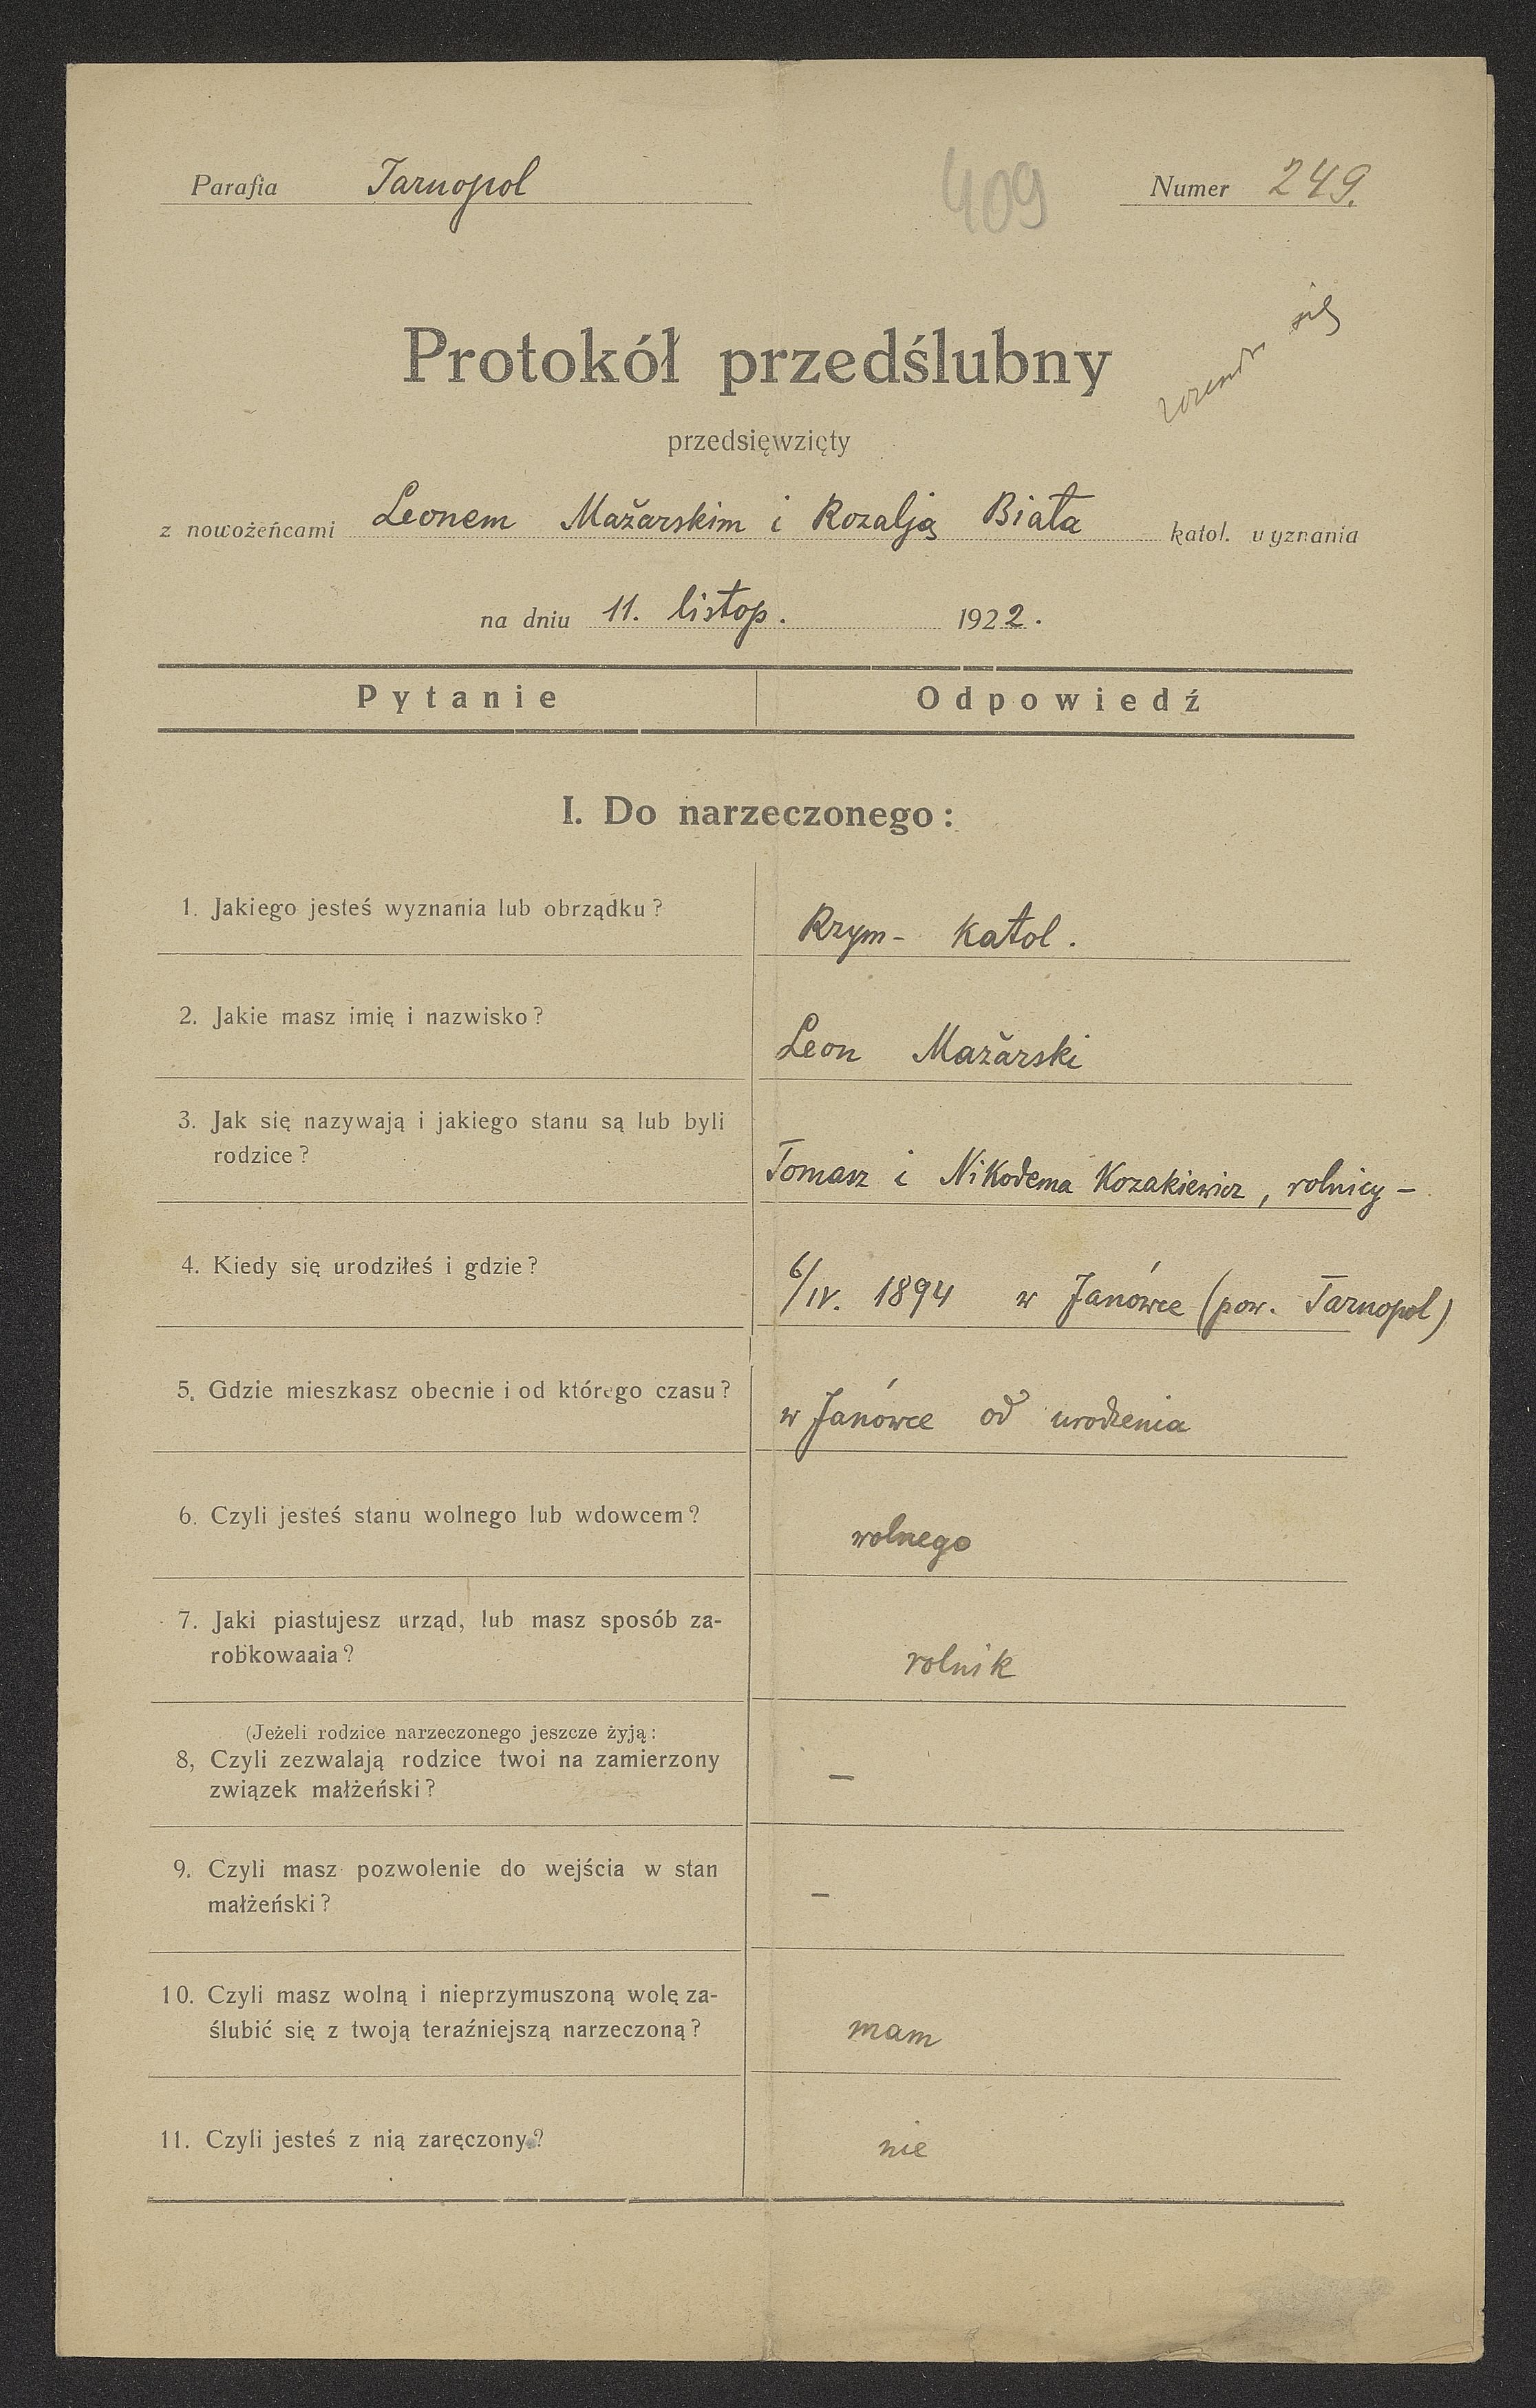 Parafia Tarnopol 409 Numer 249.
się
Protokół przedślubny
przedsięwzięty
z nowożeńcami Leonem Mažarskim i Rozalją Białą katol. wyznania
na dniu 11. listop. 1922.
Pytanie Odpowiedź
I. Do narzeczonego:
1. Jakiego jesteś wyznania lub obrządku? Rzym- katol.
2. Jakie masz imię i nazwisko? Leon Mažarski
3. Jak się nazywają i jakiego stanu są lub byli
rodzice? Tomasz i Nikodema Kozakiewicz, rolnicy -
4. Kiedy się urodziłeś i gdzie? 6/IV. 1894 w Janówce (pow. Tarnopol)
5. Gdzie mieszkasz obecnie i od którego czasu? w Janówce od urodzenia
6. Czyli jesteś stanu wolnego lub wdowcem? wolnego
7. Jaki piastujesz urząd, lub masz sposób za-
robkowaaia? rolnik
(Jeżeli rodzice narzeczonego jeszcze żyją:
8, Czyli zezwalają rodzice twoi na zamierzony
związek małżeński? —
9. Czyli masz pozwolenie do wejścia w stan
małżeński? —
10. Czyli masz wolną i nieprzymuszoną wolę za-
ślubić się z twoją teraźniejszą narzeczoną? mam
11. Czyli jesteś z nią zaręczony? nie